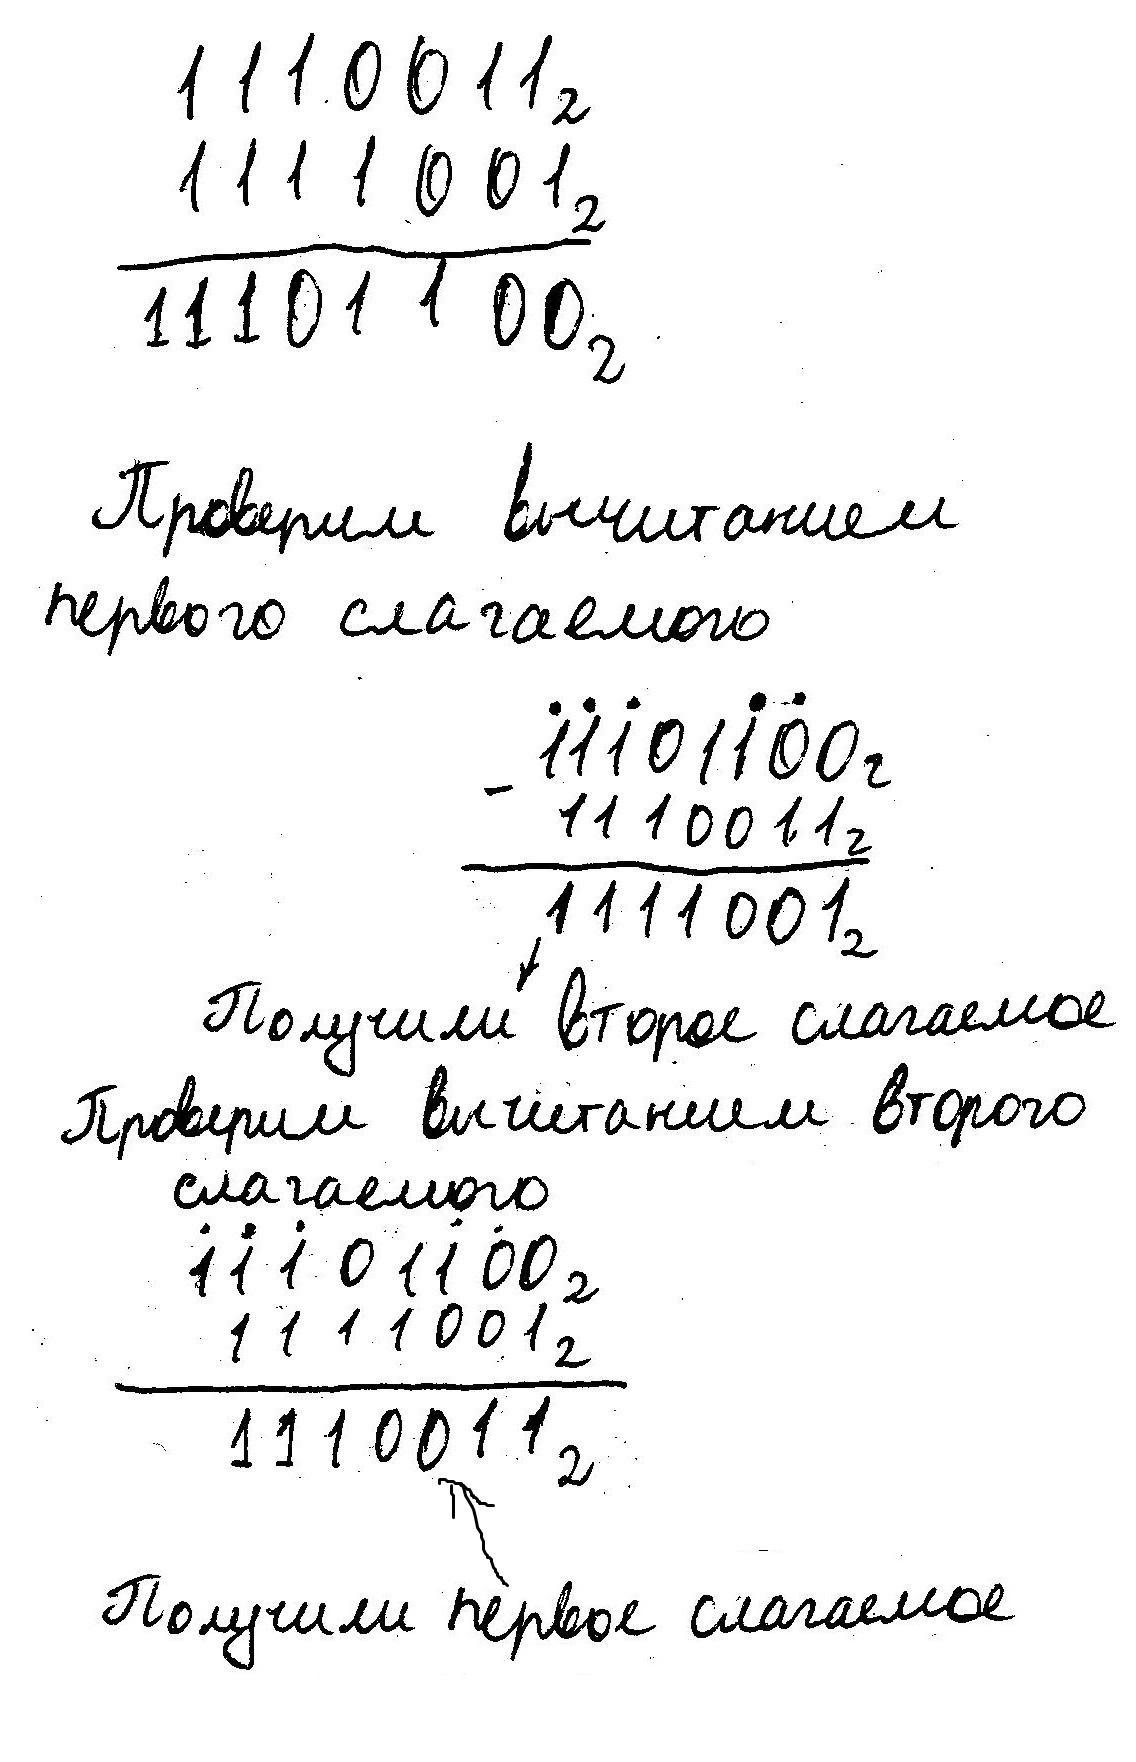 1110011₂
1111001₂
11101100₂
Проверим вычитанием
первого слагаемого
11101100₂
- 1110011₂
1111001₂
Получили второе слагаемое
Проверим вычитанием второго
слагаемого
11101100₂
1111001₂
1110011₂
Получили первое слагаемое